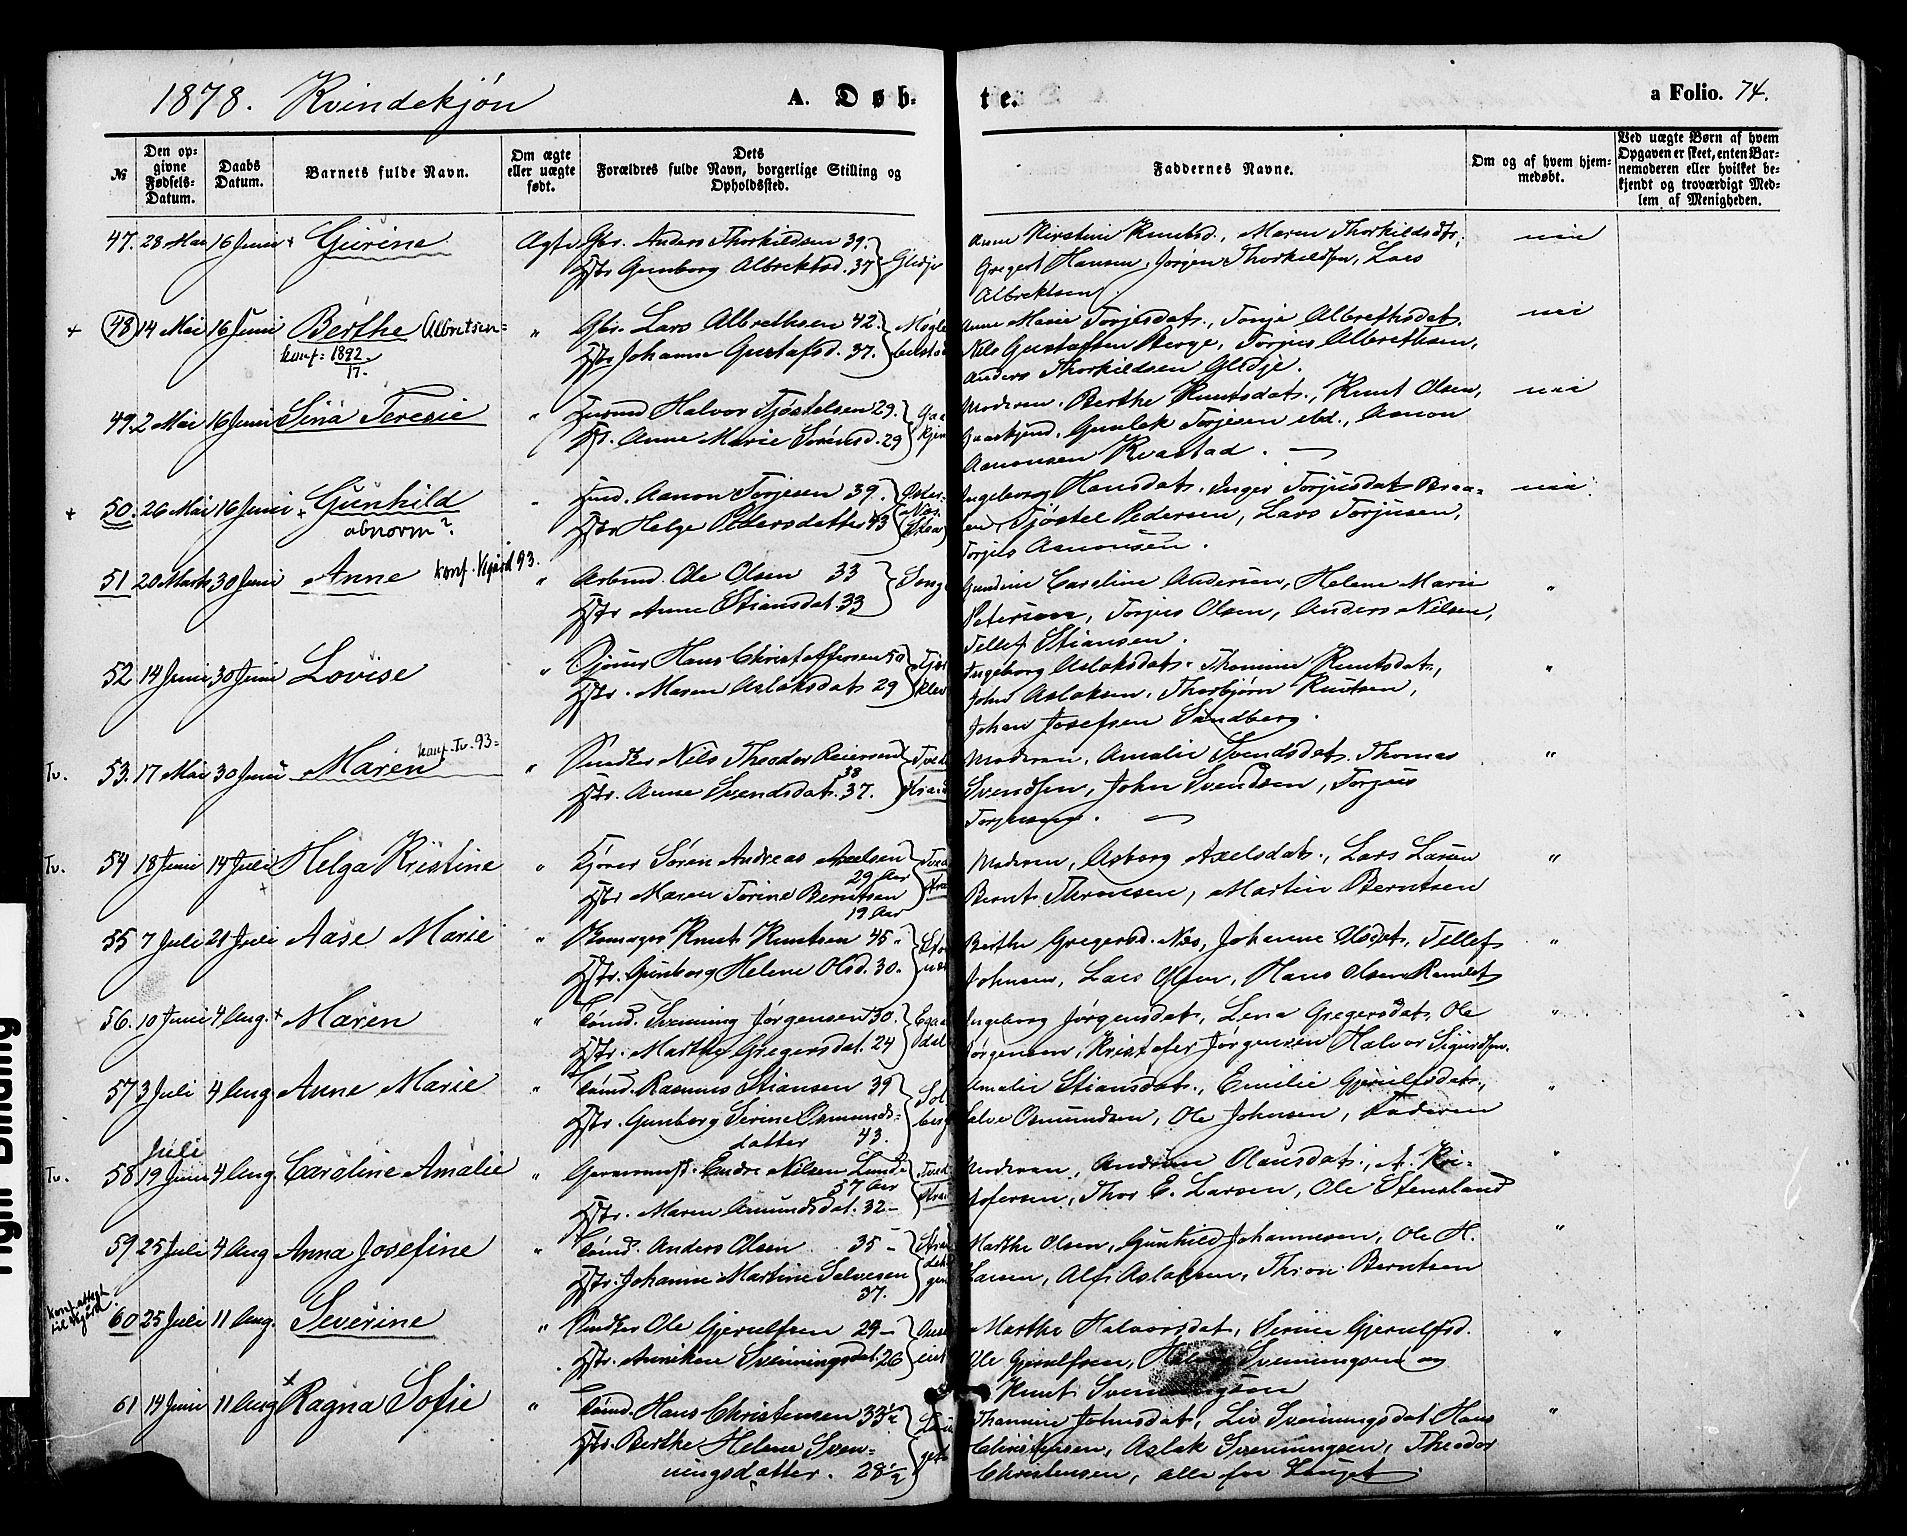 1878. Kvindekjøn
A. Døb-
te.
a Folio. 74.
№
Den op-
givne
Fødsels-
Datum.
Daabs
Datum.
Barnets fulde Navn.
Om ægte
eller uægte
født.
Dets
Forældres fulde Navn, borgerlige Stilling og
Opholdssted.
Faddernes Navne.
Om og af hvem hjem-
medøbt.
Ved uægte Børn af hvem
Opgaven er skeet, enten Bar-
nemoderen eller hvilket be-
kjendt og troværdigt Med-
lem af Menigheden.
47. 28 Mai 16 Juni + Gurine Ægte Gbr. Anders Thorkildsen 39. Glidje
Hstr Gunborg Albrektsd. 37
Anne Kirstine Knutsd., Maren Thorkildsdtr,
Gregert Hansen, Jørgen Thorkildsen, Lars
Albrektsen
nei
+ 48 14 Mai 16 Juni Berthe Albretsen= " Gbr. Lars Albrethsen 42.
konf: 1892
17.
Hstr Johanne Gustafsd. 37.
Anne Marie Torjusdat., Tonje Albrethsdat.
Nils Gustafsen Berge, Torjus Albrethsen,
Anders Thorkildsen Glidje.
nei
49. 2 Mai 16 Juni Sina Teresie " Halvor Tjøstelsen 29.
Anne Marie Sørensd. 29
Moderen, Berthe Knutsdat., Knut Olsen,
Gunlek Torjesen ibd., Aanon
Aanonsen Kvastad.
nei
+ 50. 26 Mai 16 Juni + Gunhild " Aanon Torjesen 39.
abnorm?
Hstr Helge Pedersdatter 43
Ingeborg Hansdat. Inger Torjusdat. Braa-
ten, Tjøstel Pedersen, Lars Torjusen,
Torjus Aanonsen.
nei
51 20 Marts 30 Juni Anne konf. Vegård 93. " Arbmd. Ole Olsen 33
Hstr Anne Stiansdat. 33
Gundine Caroline Andersen, Helene Marie
Petersen, Torjus Olsen, Anders Nilsen,
Tellef Stiansen.
"
52. 14 Juni 30 Juni Lovise " Hans Christoffersen 50
Hstr. Maren Aslaksdat. 29
Ingeborg Aslaksdat. Thomine Knutsdat.,
John Aslaksen, Thorbjørn Knutsen,
Johan Josefsen Sandberg.
"
Tv. 53. 17 Mai 30 Juni Maren konf. Tv. 93= " Nils Theodor Reiersen
38
Hstr. Anne Svendsdat. 37.
Moderen, Amalie Svendsdat. Thomas
Svendsen, John Svendsen, Torjus
"
Tv. 54 18 Juni 14 Juli Helga Kristine " Søren Andreas Axelsen
29 Aar
Hstr Maren Torine Berntsen
19 Aar
Moderen, Asborg Axelsdat., Lars Larsen
Bernt Thronsen, Martin Berntsen
"
55 7 Juli 21 Juli Aase Marie " Knut Knutsen 45
Hstr. Gunborg Helene Olsd. 30.
Berthe Gregersd. Næs, Johanne Olsdat, Tellef
Johnsen, Lars Olsen, Hans Olsen Ramlet
"
56. 10 Juni 4 Aug. + Maren " Svenning Jørgensen 30.
Hstr. Marthe Gregersdat. 24
Ingeborg Jørgensdat., Lena Gregersdat. Ole
Jørgensen, Kristofer Jørgensen Halvor Sigurdsen.
"
57 3 Juli 4 Aug Anne Marie " Rasmus Stiansen 39 Sol-
berg
Hstr. Gunborg Serine Osmunds-
datter 43.
Amalie Stiansdat., Emilie Gjerulfsdat.,
Salve Osmundsen, Ole Johnsen, Faderen
"
Juli
Tv. 58 19 Juni 4 Aug. Caroline Amalie " Endre Nilsen Lunde
57 Aar
Hstr. Maren Amundsdat. 32 -
Moderen, Olausdat., A. Kri-
stofersen, Thor E. Larsen, Ole Stensland
"
59 25 Juli 4 Aug Anna Josefine " Anders Olsen 35 -
Hstr. Johanne Martine Salvesen
37.
Marthe Olsen, Gunhild Johannesen, Ole H.
Larsen, Alf Aslaksen, Thron Berntsen
"
60 25 Juli 11 Aug. Severine " Ole Gjerulfsen 29 -
Hstr. Anniken Svenningsdat. 26
Marthe Halvorsdat, Serine Gjerulfsd.
Ole Gjerulfsen, Halvor Svenningsen og
Knut Svenningsen
"
61 14 Juni 11 Aug + Ragna Sofie " Hans Christensen 33½
Hstr. Berthe Helene Sven-
ningsdatter. 28½
Thomine Johnsdat., Liv Svenningsdat. Hans
Christensen, Aslak Svenningsen, Theodor
Christensen, alle fra Lauget.
"